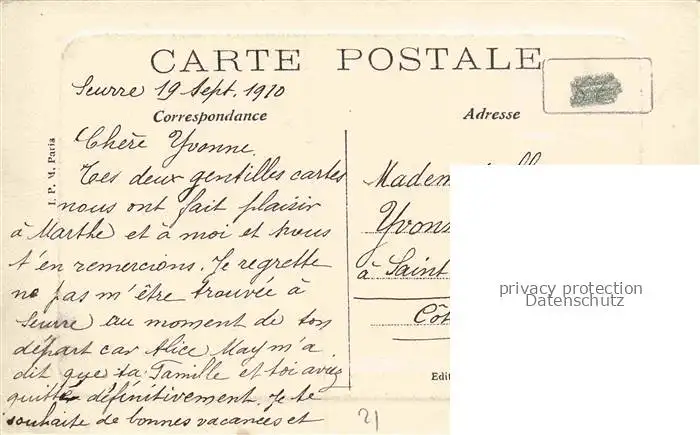 CARTE POSTALE
Seurre 19 Sept. 1910
Correspondance
Adresse
Chère Yvonne
Tes deux gentilles cartes
nous ont fait plaisir
à Marthe et à moi et nous
t'en remercions. Je regrette
ne pas m'être trouvée à
Seurre au moment de ton
départ car Alice May m'a
dit que ta Famille et toi avez
quitté définitivement. Je te
souhaite de bonnes vacances et
Madem
Yvon
à Saint
Côt
Edit
I. P. M. Paris
21
privacy protection
Datenschutz